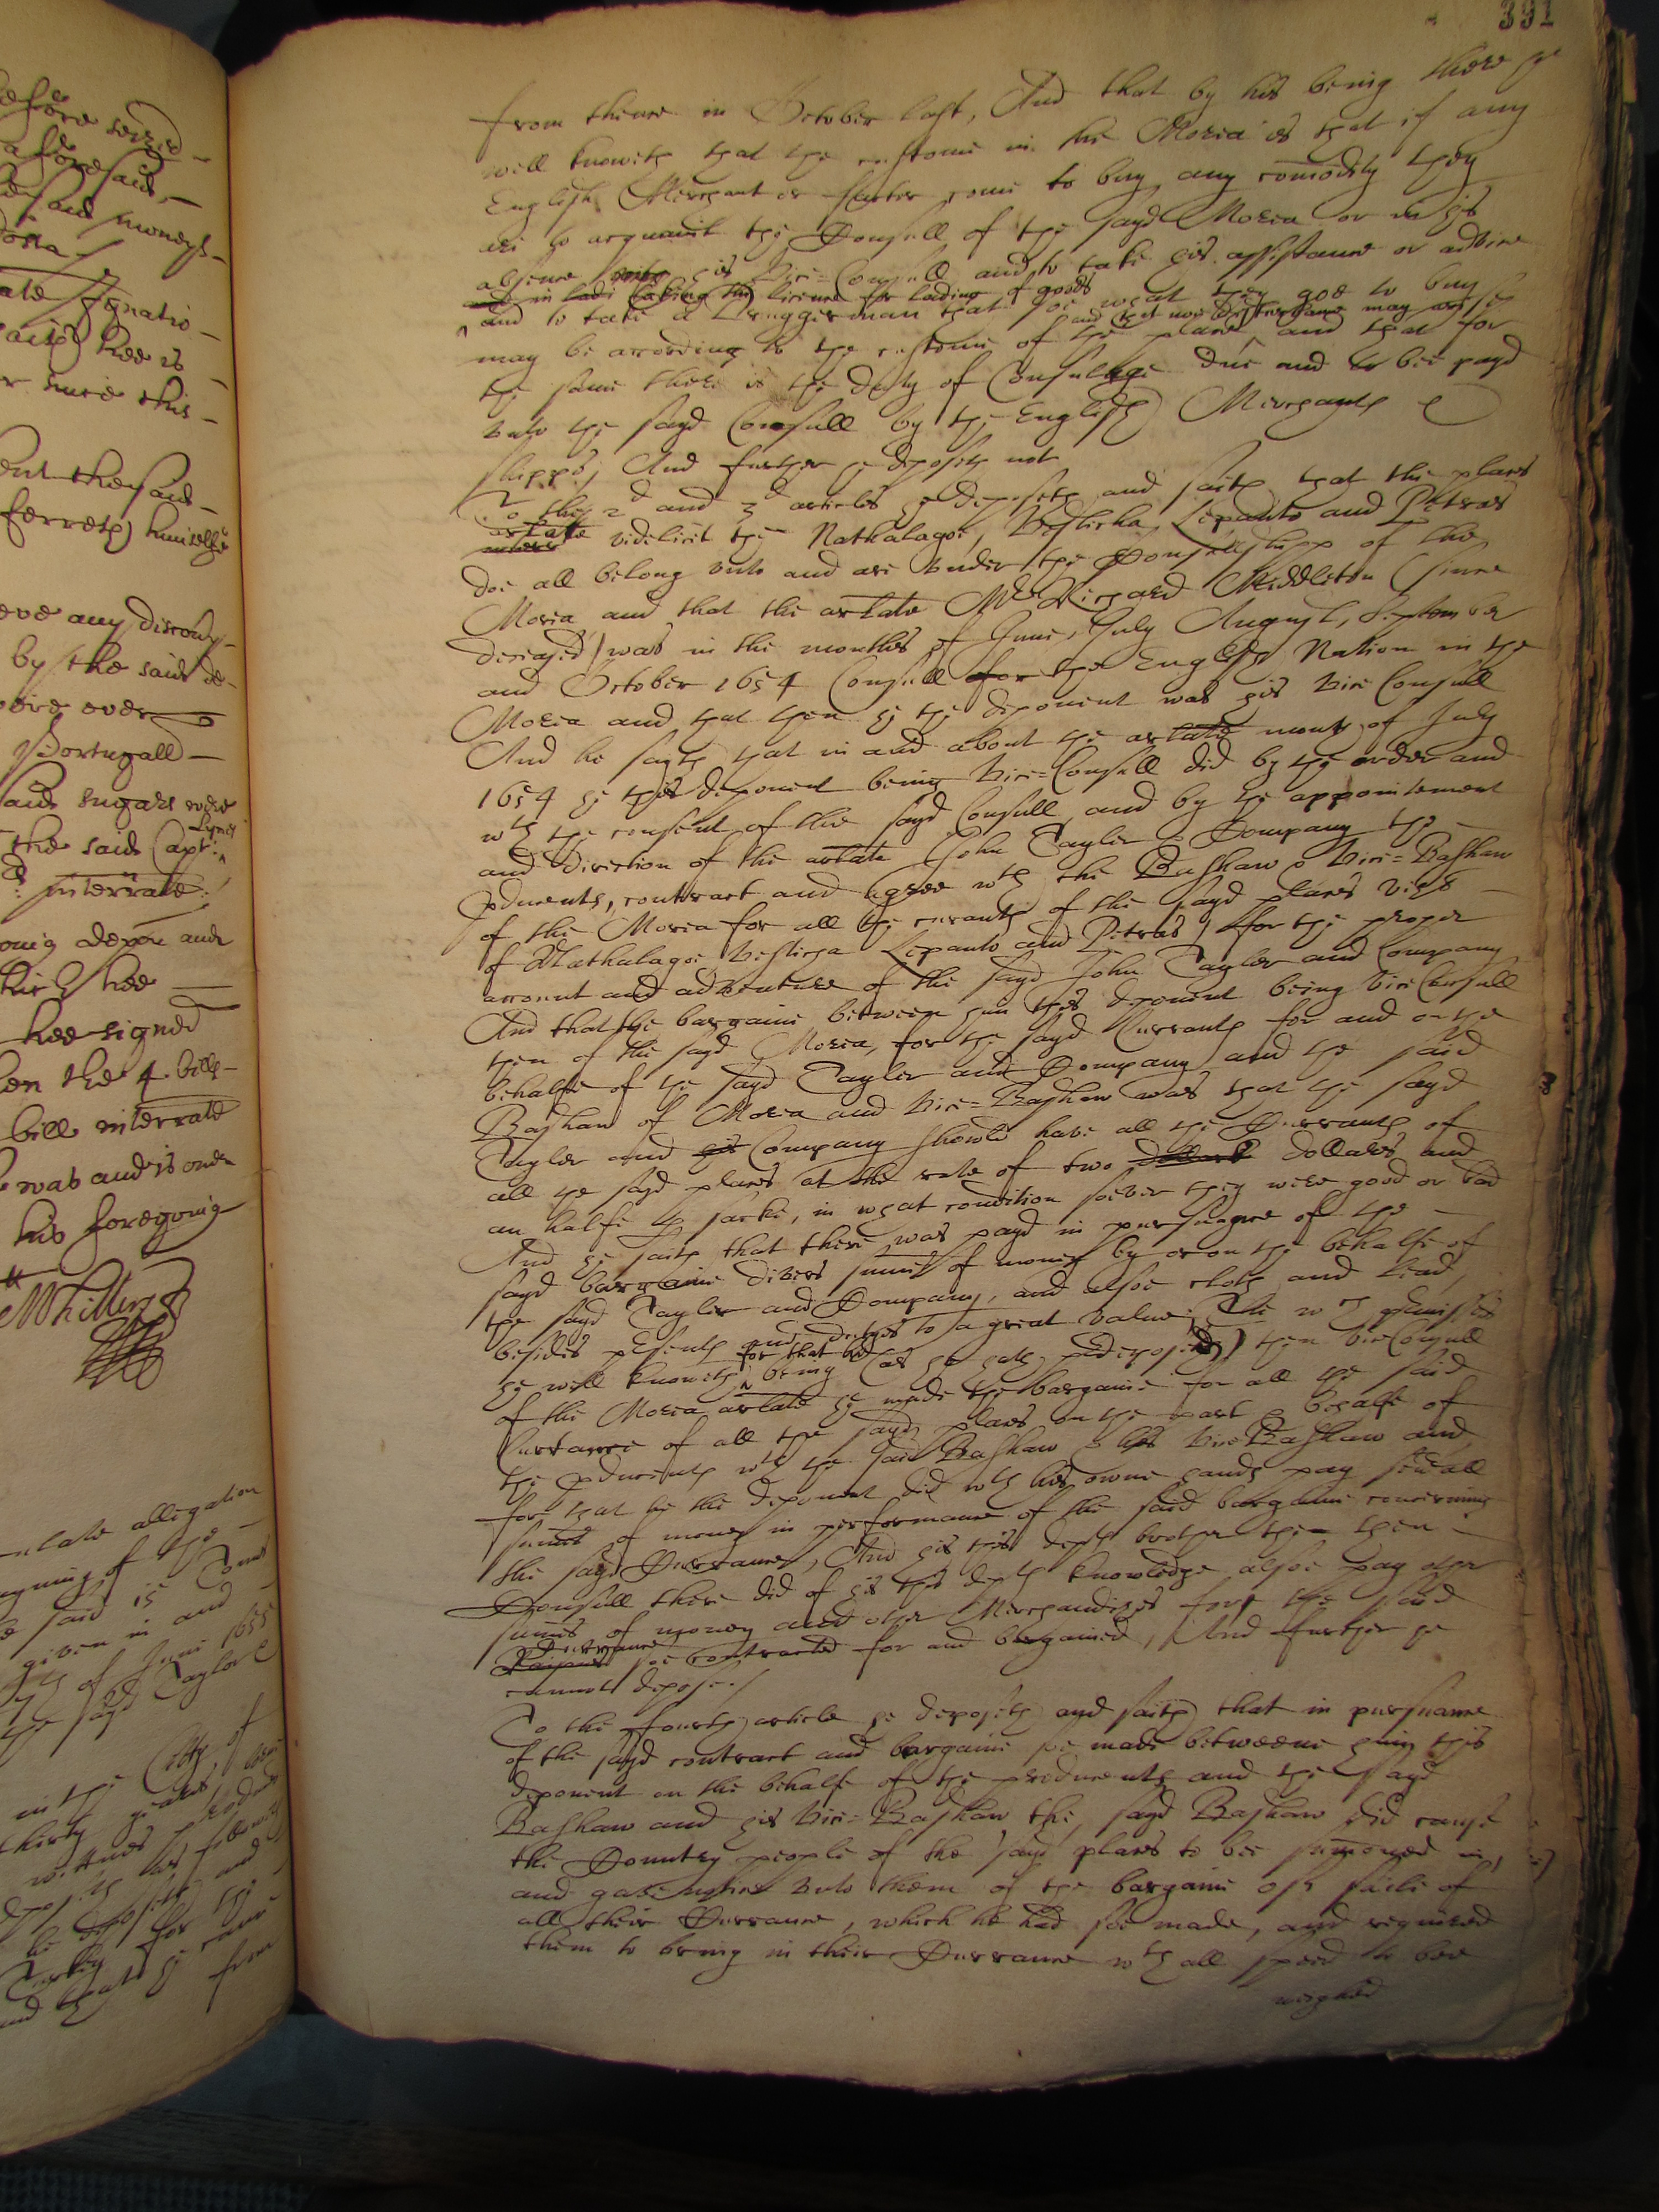 391
from thence in October last, And that by his being there he
well knoweth that the custome in the Morea is that if any
English Merchant or factor come to buy any comodity they
are to acquaint the Consull of the sayd Morea or in his
absence with his Vice=Consull and to take his assistance or advice
in lade taking the licence for lading of goods
and to take a Druggerman that soe what they goe to buy
and that noe disturbance may
may be according to the custome of the place and that for
the same there is the duty of Consulage due and to bee payd
unto the sayd Consull by the English Merchants &
shipps, And further he deposeth not
To the 2d and 3d articles he deposeth and saith that the places
arlate videlicet the Nathalagoe, Veslicha, Lepanto and Petras
doe all belong unto and are under the Consullshipp of the
Morea and that the arlate Mr Richard Middleton (since
deceased) was in the monthes of June, July August, September
and October 1654 Consull for the English Nation in the
Morea and that then he the deponent was his Vice Consull
And he sayth that in and about the arlate month of July
1654 he this deponent being Vice=Consull did by the order and
wth the consent of the sayd Consull and by the appointement
and direction of the arlate John Tayler & Company the
producents, contract and agree wth the Bashaw & Vice=Bashaw
of the Morea for all the currants of the sayd places vizt
of Nathalagoe Veslicha Lepanto and Petras) for the proper
account and adventure of the sayd John Tayler and Company
And that the bargaine betweene him this deponent being Vice Consull
then of the sayd Morea, for the sayd Currants for and on the
behalfe of the sayd Tayler and Company and the said
Bashaw of Morea and Vice=Bashaw was that the sayd
Tayler and his Company should have all the Currants of
all the sayd places at the rate of two dollars dollars and
an halfe per sacke, in what condition soever they were good or bad
And he saith that there was payd in pursuance of the
sayd bargaine divers summs of money by or on the behalfe of
the sayd Tayler and Company, and alsoe cloth and lead,
besides presents and to a great value, The wch premisses
for that hee
he well knoweth being (as he hath predeposed) then vice Consull
of the Morea arlate he made the bargaine for all the said
Currance of all the sayd places on the part & behalfe of
the producents wth the said Bashaw & his Vice Bashaw and
for that he the deponent did wth his owne hands pay severall
summs of money in performance of the said bargaine concerning
the sayd Currance, And his this depts brother the then
Consull there did of his this depts knowledge alsoe pay other
summs of money and other Merchandizes for the said
Currance
soe contracted for and bargained, And further he
cannot depose./
To the fourth article he deposeth and saith that in pursuance
of the sayd contract and bargaine soe made betweene him this
deponent on the behalfe of the producents and the sayd
Bashaw and his Vice=Bashaw the sayd Bashaw did cause
the Country people of the sayd places to bee sumoned in,
and gave notice unto them of the bargaine or saile of
all their Currance, which he had soe made, and required
them to bring in their Currance wth all speed to bee
weighed
before seized
aforesaid,
said moneys
hee is
since this
ent the said
ferreth) himselfe
any discovery
by the said de-
ever
Portugall
said sugars were
Lyney
the said Capt:
interrate:
depon and
hee
hee signed
the 4 bills
bill interrate
was and is one
his foregoing
late allegation
of the
said is
given in and
of June 1655
the sayd Taylor &
in the City of
thirty yeares
wittnes